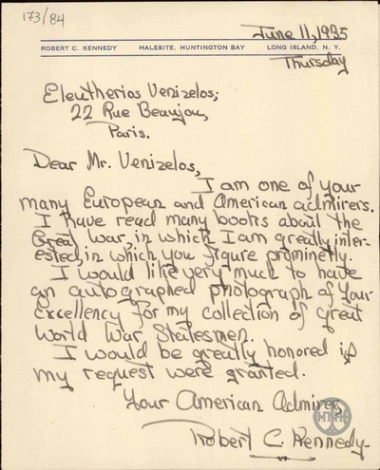 173/84
June 11, 1935
ROBERT C. KENNEDY HALESITE, HUNTINGTON BAY LONG ISLAND, N. Y.
Thursday
Eleutherios Venizelos;
22 Rue Beaujou,
Paris.
Dear Mr. Venizelos,
I am one of your
many European and American admirers.
I have read many books about the
Great War, in which I am greatly inter-
ested, in which you figure prominetly.
I would like very much to have
an autographed photograph of Your
Excellency for my collection of great
World War Statesmen.
I would be greatly honored if
my request were granted.
Your American Admirer,
Robert C. Kennedy-